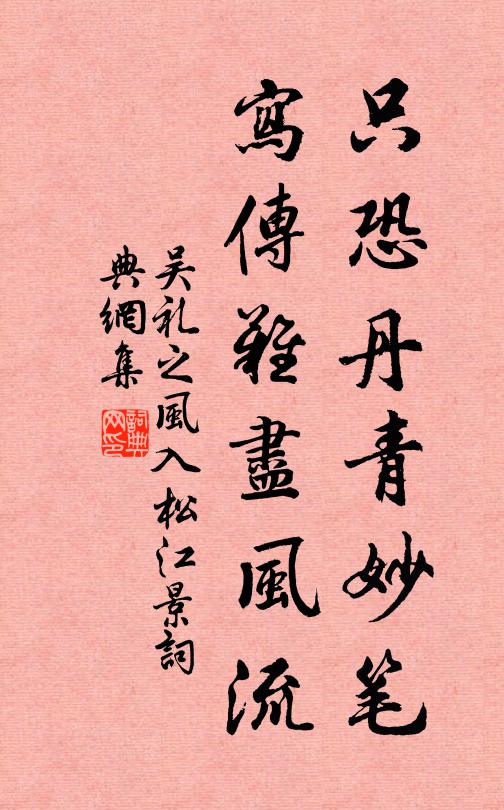 只恐丹青妙笔
寫傳難盡風流
吴礼之風入松江景詞
典網集
詞典
网印